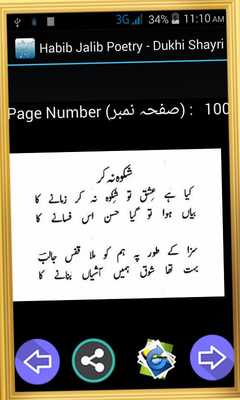 3G 34% 11:10 AM
Habib Jalib Poetry - Dukhi Shayri
Page Number (صفحہ نمبر) : 100
شکوہ نہ کر
کیا ہے عشق تو شکوہ نہ کر زمانے کا
بیاں ہوا تو گیا حسن اس فسانے کا
سزا کے طور پہ ہم کو ملا قفس جالبؔ
بہت تھا شوق ہمیں آشیاں بنانے کا